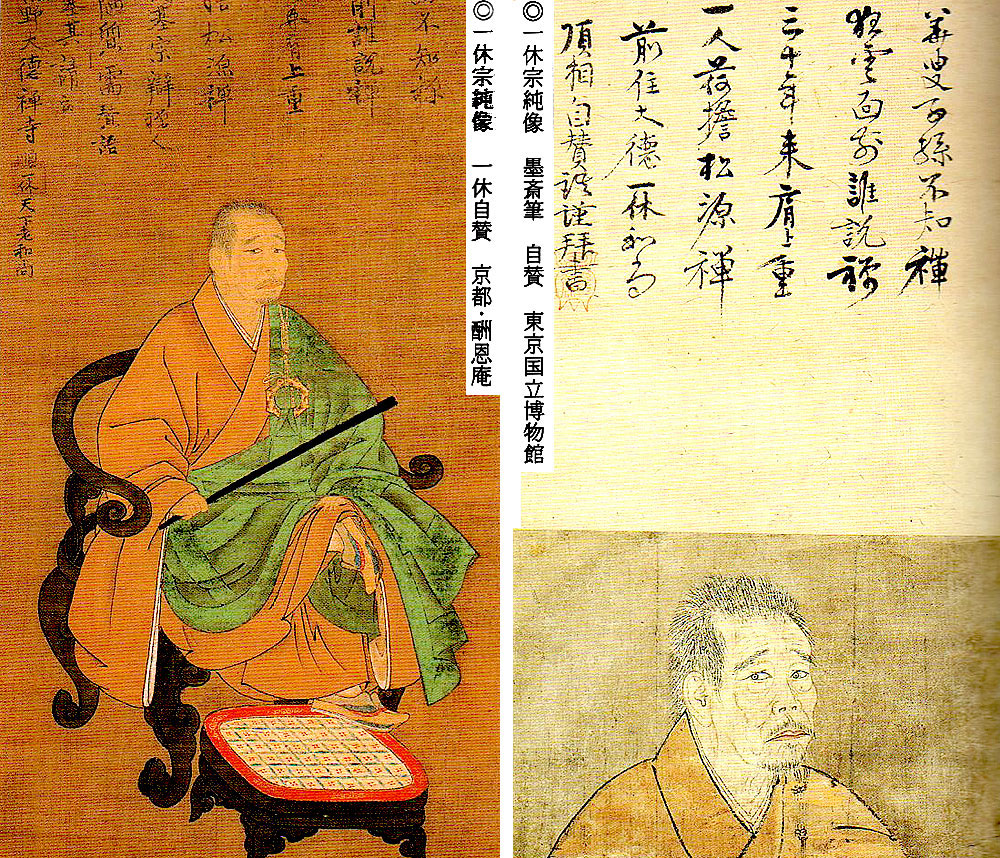 華叟子孫不知禅
狂雲面前誰説禅
三十年来肩上重
一人荷擔松源禅
前住大徳一休和尚
頂相自賛謹拝書
◎一休宗純像 墨斎筆 自賛 東京国立博物館
◎一休宗純像 一休自賛 京都・酬恩庵
不知禅
前誰説禅
来肩上重
松源禅
陋質需賛語
塞其請云
大徳禅寺 一休天下老和尚